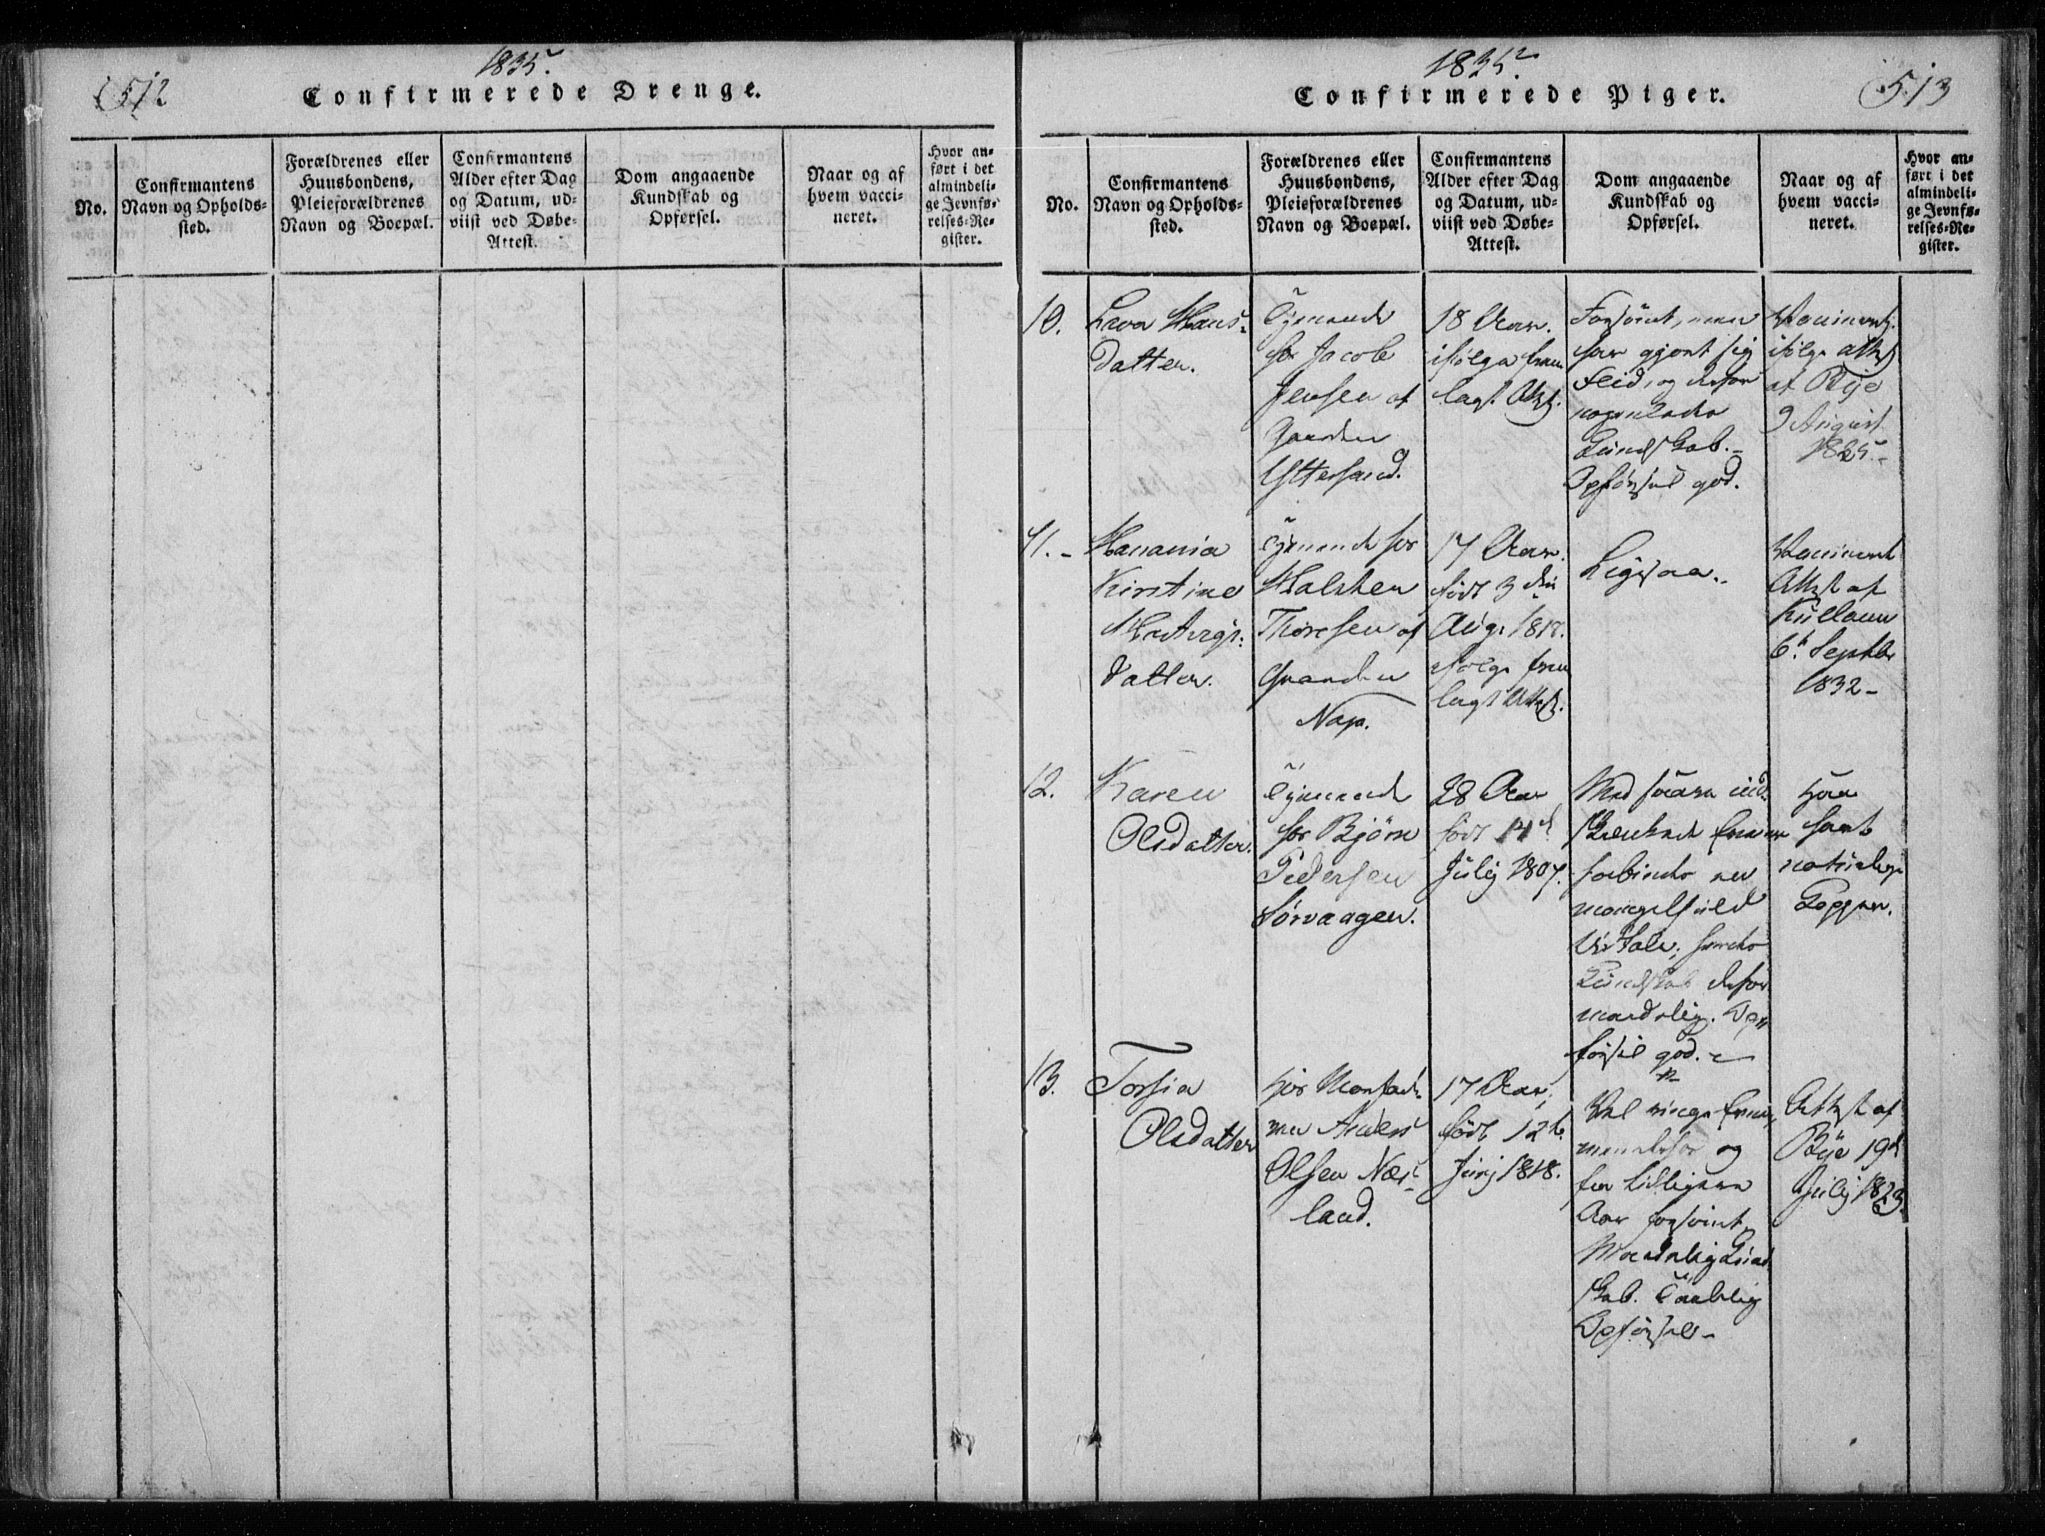 512
1835.
Confirmerede Drenge.
No.
Confirmantens
Navn og Opholds-
sted.
Forældrenes eller
Huusbondens,
Pleieforældrenes
Navn og Boepæl.
Confirmantens
Alder efter Dag
og Datum, ud-
viist ved Døbe-
Attest.
Dom angaaende
Kundskab og
Opførsel.
Naar og af
hvem vacci-
neret.
Hvor an-
ført i det
almindeli-
ge Jevnfø-
relses-Re-
gister.
1835.
513
Confirmerede Piger.
No.
Confirmantens
Navn og Opholds-
sted.
Forældrenes eller
Huusbondens,
Pleieforældrenes
Navn og Boepæl.
Confirmantens
Alder efter Dag
og Datum, ud-
viist ved Døbe-
Attest.
Dom angaaende
Kundskab og
Opførsel.
Naar og af
hvem vacci-
neret.
Hvor an-
ført i det
almindeli-
ge Jevnfø-
relses-Re-
gister.
10.
Hans-
datter.
Tjenende
hos Jacob
Jensen af
Gaarden
Yttersand.
18 Aar.
ifølge frem
lagt Attest.
Forsømt, men
har gjort sig
Fliid, og derfor
nogenledes
Kundskab.-
Opførsel god.
Vaccineret
ifølge Attest
af Bye
9 August
1825.-
11.-
Hanania
Kirstine
datter.
Tjenende hos
Halsten
Thoresen af
Gaarden
Nap.
17 Aar.
født 3 die
Aug. 1818.
ifølge frem
lagt Attest.
Ligesaa.
Vaccineret
Attest af
6t Septbr
1832-
12.
Karen
Olsdatter.
Tjenende
hos Bjørn
Pedersen
Sørvaagen.
28 Aar
født 14d
Julij 1807.
Med svare ind-
skrænkede Evner
forbindes en
mangelfuld
Udtale; hendes
Kundskab derfor
maadelig. Op-
førsel god.-
Har
havt
naturlige
Kopper.
13.
Torsia
Olsdatter
Hos
Anders
Olsen Næs-
land.
17 Aar,
født 12te
Junj 1818.
Vel ringe Evner,
men derfor og
for tidligere
Aar forsømt,
Maadelig Kund
skab. Taalelig
Opførsel-
Attest af
Bye 19d
Julij 1823.